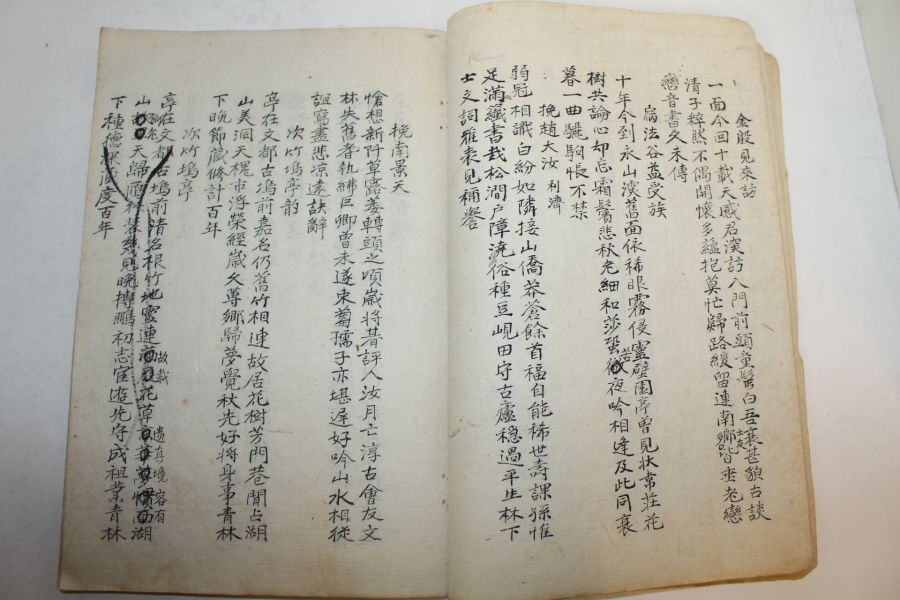 金殷見來訪
一面今回十載天感君深訪入門前頭童髮白吾衰甚貌古談
清子粹然不偶開懷多蘊抱莫忙歸路緩留連南鄉皆垂老戀
戀音書久未傳
寫法谷孟受族
十年今到永山溪舊面依稀眼霧侵靈壁園亭曾見狀韋莊花
樹共論心却忘霜鬢悲秋老細和莎蛩夜吟相逢及此同衰
暮一曲驪駒悵不禁
挽趙大汝 利濟
弱冠相識白紛如隣接山僑莽蒼餘首福自能稀世壽課孫惟
足滿籯書栽松澗戶障澆俗種豆峴田守古廬穩過平生林下
士文詞雅表見補譽
挽南景天
愴想新阡草露萎轉頭之頃歲將朞評人汝月亡淳古會友文
林失舊耆執紼巨卿曾未遂束蒭孺子亦堪遲好吟山水相從
詛寫盡悲凉遠訣辭
次竹塢亭韵
亭在文都古塢前嘉名仍舊竹相連故居花樹芳門巷閒占湖
山美洞天槐市浮榮經歲久尊鄉歸夢覺秋先好將身事青林
下晚節藏修計百年
次竹塢亭
亭在文都古塢前清名根竹地靈連故栽花草遺真境容有湖
山天歸 幾見晚摶鵬初志宦遊先守成祖業青林
下種德深 度百年